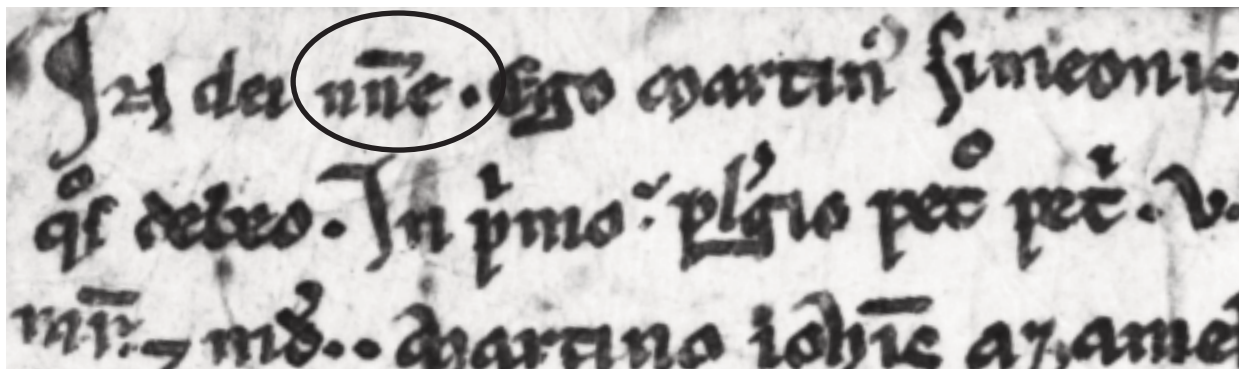 Jn dei nn̄e · Ego martin⁹ simeonis
qͦs debeo · Jn pͥmo : pl̓gio petͦ petͥ · v ·
mr̄. ⁊ md̓ · · Martino ioh̄is